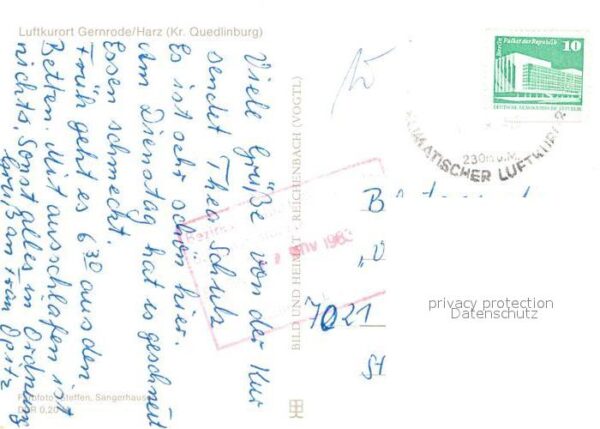 Luftkurort Gernrode/Harz (Kr. Quedlinburg)
Viele Grüße von der Kur
sendet Thea Schulz
Es ist sehr schön hier.
Am Dienstag hat es geschneit
Essen schmeckt.
Früh geht es 6³⁰ aus den
Betten. Mit ausschlafen ist
nichts. Sonst alles in Ordnung
Gruß an Frau Opitz
Farbfoto: Steffen, Sangerhausen
DDR 0,20
BILD UND HEIMAT · REICHENBACH (VOGTL)
Berlin, Palast der Republik
10
DEUTSCHE DEMOKRATISCHE REPUBLIK
KLIMATISCHER LUFTKURORT
230m ü.M.
NOV 1983
B
7021
St
privacy protection
Datenschutz